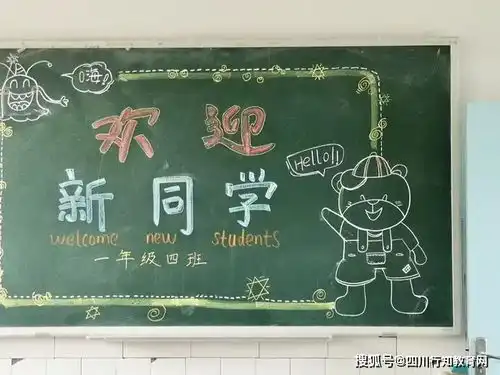 嗨!
欢迎
Hello!!
新同学
welcome new students
一年级四班
搜狐号@四川行知教育网